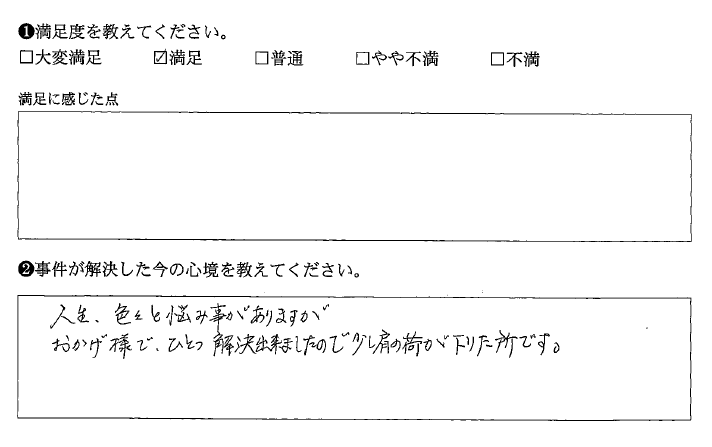 ❶満足度を教えてください。
□大変満足 ☑満足 □普通 □やや不満 □不満
満足に感じた点
❷事件が解決した今の心境を教えてください。
人生、色々と悩み事がありますが
おかげ様で、ひとつ解決出来ましたので少し肩の荷が下りた所です。